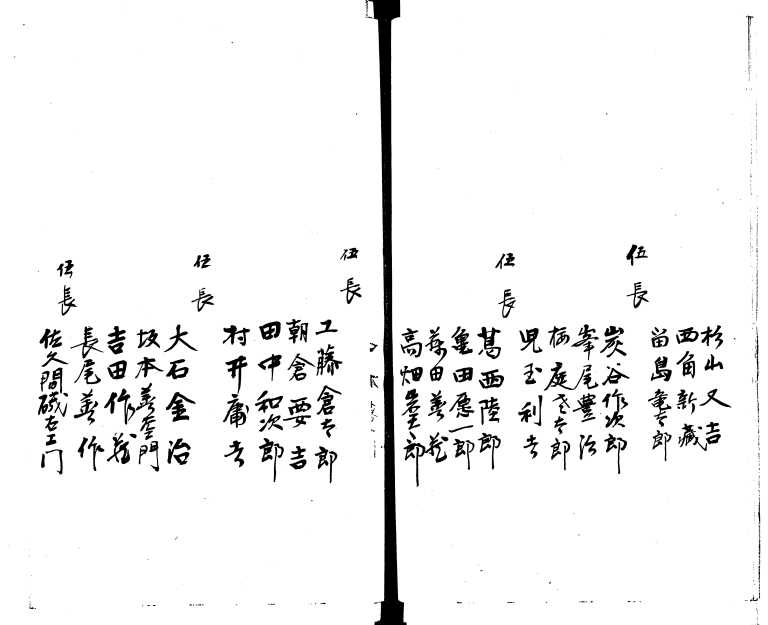 杉山又吉
西角新蔵
苗島竜太郎
伍長
炭谷作次郎
峯尾豊治
栃庭壱太郎
児玉利吉
伍長
葛西陸郎
亀田愿一郎
蒔田善蔵
高畑太郎
伍長
工藤倉太郎
朝倉要吉
田中和次郎
村井庸吉
伍長
大石金治
坂本善左衛門
吉田作蔵
長尾善作
伍長
佐久間磯右エ門